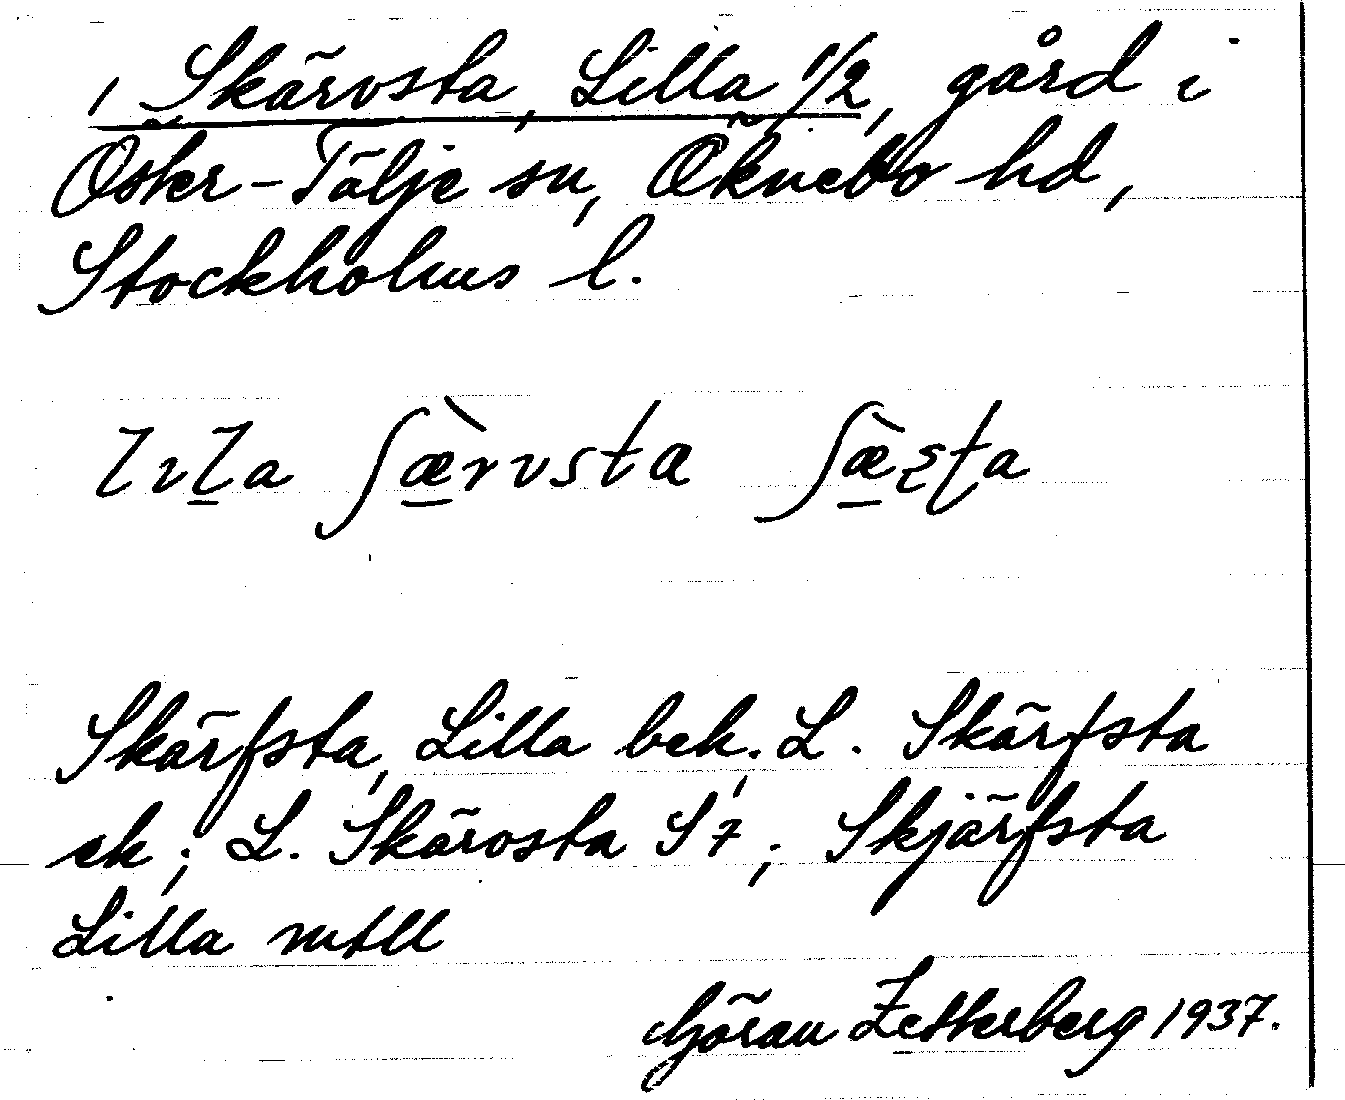 Skärvsta, Lilla 1/2, gård i
Öster-Tälje sn, Öknebo hd,
Stockholms l.
lɩl̠a ʃæ̠̀rvsta ʃæ̠̀ꞩta
Skärfsta, Lilla bek. L. Skärfsta
ek; L. Skärosta S7; Skjärfsta
Lilla mtll
Göran Zetterberg 1937.